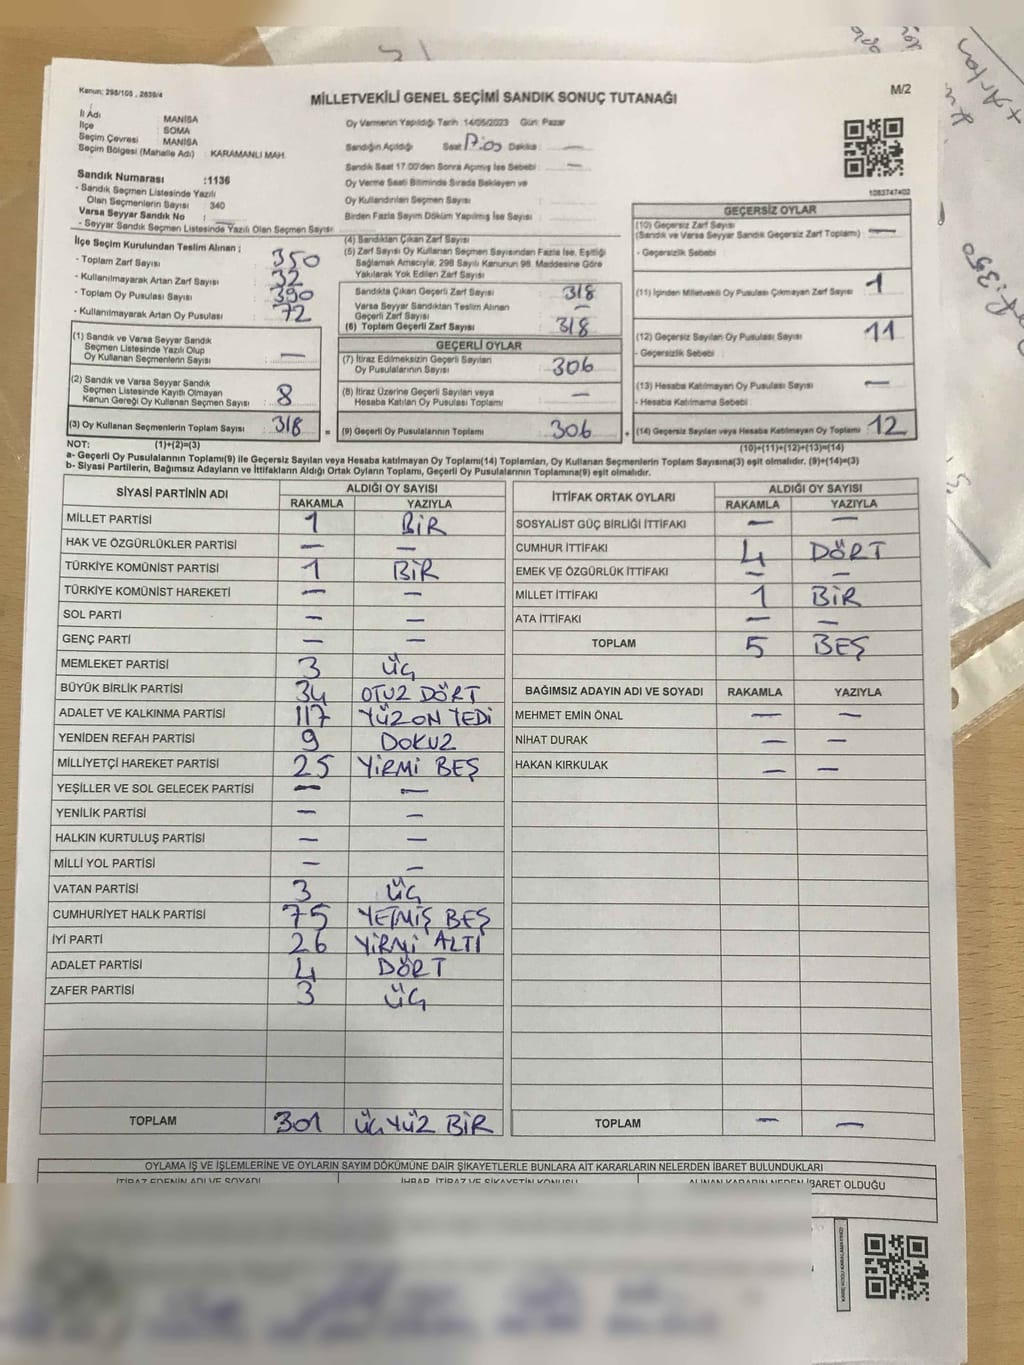 Kanun: 298/105 , 2839/4
MİLLETVEKİLİ GENEL SEÇİMİ SANDIK SONUÇ TUTANAĞI
M/2
İl Adı MANİSA
İlçe SOMA
Seçim Çevresi MANİSA
Seçim Bölgesi (Mahalle Adı) : KARAMANLI MAH.
Sandık Numarası :1136
- Sandık Seçmen Listesinde Yazılı
Olan Seçmenlerin Sayısı : 340
Varsa Seyyar Sandık No : —
- Seyyar Sandık Seçmen Listesinde Yazılı Olan Seçmen Sayısı
Oy Vermenin Yapıldığı Tarih :14/05/2023 Gün: Pazar
Sandığın Açıldığı Saat 17:00 Dakika : —
Sandık Saat 17.00'den Sonra Açılmış İse Sebebi : —
Oy Verme Saati Bitiminde Sırada Bekleyen ve
Oy Kullandırılan Seçmen Sayısı
Birden Fazla Sayım Döküm Yapılmış İse Sayısı
1083747402
İlçe Seçim Kurulundan Teslim Alınan ;
- Toplam Zarf Sayısı 350
- Kullanılmayarak Artan Zarf Sayısı : 32
- Toplam Oy Pusulası Sayısı : 390
- Kullanılmayarak Artan Oy Pusulası : 72
(1) Sandık ve Varsa Seyyar Sandık
Seçmen Listesinde Yazılı Olup
Oy Kullanan Seçmenlerin Sayısı : —
(2) Sandık ve Varsa Seyyar Sandık
Seçmen Listesinde Kayıtlı Olmayan
Kanun Gereği Oy Kullanan Seçmen Sayısı : 8
(3) Oy Kullanan Seçmenlerin Toplam Sayısı : 318
(4) Sandıktan Çıkan Zarf Sayısı
(5) Zarf Sayısı Oy Kullanan Seçmen Sayısından Fazla İse, Eşitliği
Sağlamak Amacıyla, 298 Sayılı Kanunun 98. Maddesine Göre
Yakılarak Yok Edilen Zarf Sayısı
Sandıkta Çıkan Geçerli Zarf Sayısı : 318
Varsa Seyyar Sandıktan Teslim Alınan
Geçerli Zarf Sayısı : —
(6) Toplam Geçerli Zarf Sayısı : 318
GEÇERLİ OYLAR
(7) İtiraz Edilmeksizin Geçerli Sayılan
Oy Pusulalarının Sayısı : 306
(8) İtiraz Üzerine Geçerli Sayılan veya
Hesaba Katılan Oy Pusulası Toplamı : —
= (9) Geçerli Oy Pusulalarının Toplamı : 306
GEÇERSİZ OYLAR
(10) Geçersiz Zarf Sayısı
(Sandık ve Varsa Seyyar Sandık Geçersiz Zarf Toplamı) : —
- Geçersizlik Sebebi :
(11) İçinden Milletvekili Oy Pusulası Çıkmayan Zarf Sayısı : 1
(12) Geçersiz Sayılan Oy Pusulası Sayısı : 11
- Geçersizlik Sebebi :
(13) Hesaba Katılmayan Oy Pusulası Sayısı : —
- Hesaba Katılmama Sebebi :
+ (14) Geçersiz Sayılan veya Hesaba Katılmayan Oy Toplamı : 12
NOT: (1)+(2)=(3)
(10)+(11)+(12)+(13)=(14)
a- Geçerli Oy Pusulalarının Toplamı(9) ile Geçersiz Sayılan veya Hesaba katılmayan Oy Toplamı(14) Toplamları, Oy Kullanan Seçmenlerin Toplam Sayısına(3) eşit olmalıdır. (9)+(14)=(3)
b- Siyasi Partilerin, Bağımsız Adayların ve İttifakların Aldığı Ortak Oyların Toplamı, Geçerli Oy Pusulalarının Toplamına(9) eşit olmalıdır.
SİYASİ PARTİNİN ADI ALDIĞI OY SAYISI
RAKAMLA YAZIYLA
MİLLET PARTİSİ 1 BİR
HAK VE ÖZGÜRLÜKLER PARTİSİ — —
TÜRKİYE KOMÜNİST PARTİSİ 1 BİR
TÜRKİYE KOMÜNİST HAREKETİ — —
SOL PARTİ — —
GENÇ PARTİ — —
MEMLEKET PARTİSİ 3 ÜÇ
BÜYÜK BİRLİK PARTİSİ 34 OTUZ DÖRT
ADALET VE KALKINMA PARTİSİ 117 YÜZ ON YEDİ
YENİDEN REFAH PARTİSİ 9 DOKUZ
MİLLİYETÇİ HAREKET PARTİSİ 25 YİRMİ BEŞ
YEŞİLLER VE SOL GELECEK PARTİSİ — —
YENİLİK PARTİSİ — —
HALKIN KURTULUŞ PARTİSİ — —
MİLLİ YOL PARTİSİ — —
VATAN PARTİSİ 3 ÜÇ
CUMHURİYET HALK PARTİSİ 75 YETMİŞ BEŞ
İYİ PARTİ 26 YİRMİ ALTI
ADALET PARTİSİ 4 DÖRT
ZAFER PARTİSİ 3 ÜÇ
TOPLAM 301 ÜÇ YÜZ BİR
İTTİFAK ORTAK OYLARI ALDIĞI OY SAYISI
RAKAMLA YAZIYLA
SOSYALİST GÜÇ BİRLİĞİ İTTİFAKI — —
CUMHUR İTTİFAKI 4 DÖRT
EMEK VE ÖZGÜRLÜK İTTİFAKI — —
MİLLET İTTİFAKI 1 BİR
ATA İTTİFAKI — —
TOPLAM 5 BEŞ
BAĞIMSIZ ADAYIN ADI VE SOYADI RAKAMLA YAZIYLA
MEHMET EMİN ÖNAL — —
NİHAT DURAK — —
HAKAN KIRKULAK — —
TOPLAM — —
OYLAMA İŞ VE İŞLEMLERİNE VE OYLARIN SAYIM DÖKÜMÜNE DAİR ŞİKAYETLERLE BUNLARA AİT KARARLARIN NELERDEN İBARET BULUNDUKLARI
İTİRAZ EDENİN ADI VE SOYADI İHBAR, İTİRAZ VE ŞİKAYETİN KONUSU ALINAN KARARIN NEDEN İBARET OLDUĞU